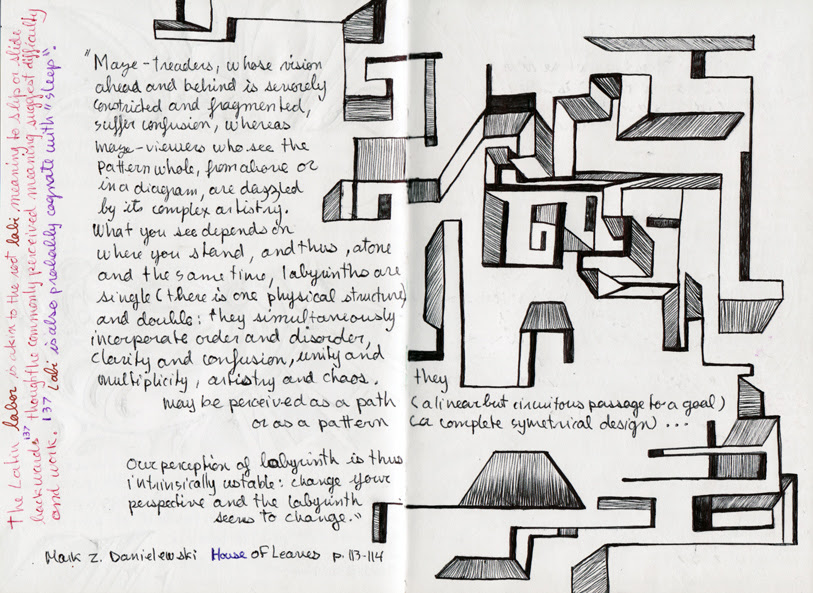 The Latin labor is akin to the root labi, meaning to slip or slide
backwards 137 thought the commonly perceived meaning suggest difficulty
and work. 137 Labi is also probably cognate with "sleep".
"Maze-treaders, whose vision
ahead and behind is severely
constricted and fragmented,
suffer confusion, whereas
maze-viewers who see the
pattern whole, from above or
in a diagram, are dazzled
by its complex artistry.
What you see depends on
where you stand, and thus, at one
and the same time, labyrinths are
single (there is one physical structure)
and double: they simultaneously
incorporate order and disorder,
clarity and confusion, unity and
multiplicity, artistry and chaos. they
may be perceived as a path (a linear but circuitous passage to a goal)
or as a pattern (a complete symetrical design) ...
Our perception of labyrinth is thus
intrinsically ustable: change your
perspective and the labyrinth
seems to change."
Mark Z. Danielewski House of Leaves p. 113-114